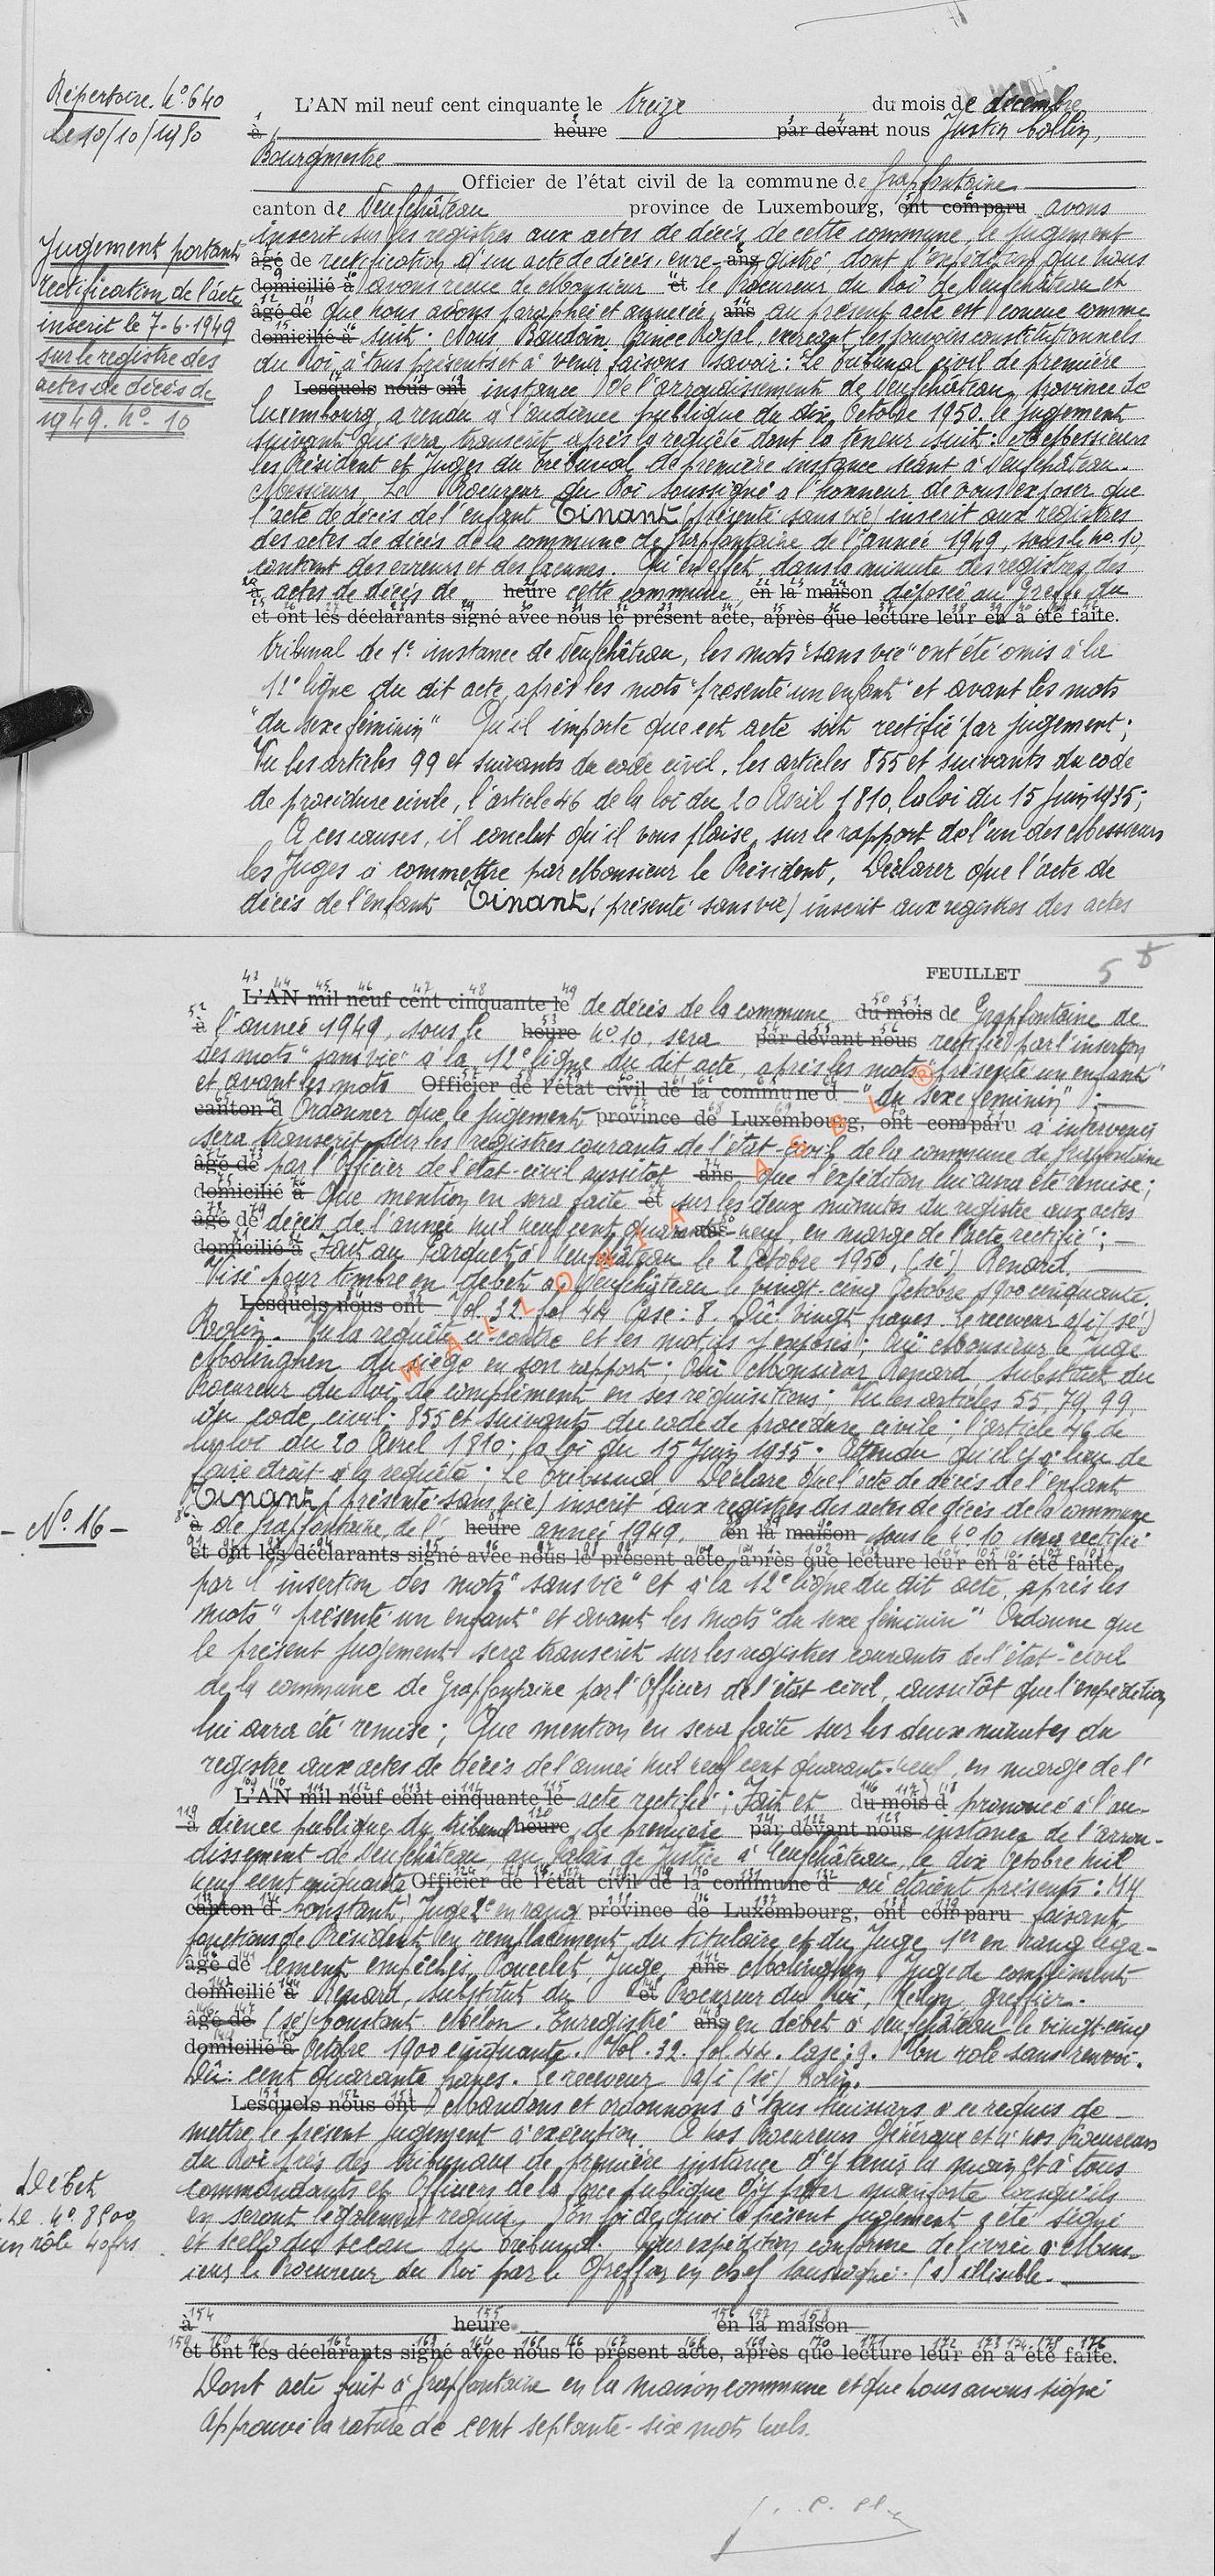 Répertoire. No. 640
Le 10/10/1950
L'AN mil neuf cent cinquante le treize du mois de décembre
à heure par devant nous Justin Collin,
Bourgmestre
Officier de l'état civil de la commune de Grapfontaine
canton de Neufchâteau province de Luxembourg, ont comparu avons
inscrit sur les registres aux actes de décès de cette commune, le jugement
Jugement portant
rectification de l'acte
inscrit le 7-6-1949
sur le registre des
actes de décès de
1949. No. 10
âgé de rectification d'un acte de décès, enre- ans gistré dont l'expédition que nous
domicilié à avons reçue de Monsieur et le Procureur du Roi de Neufchâteau et
âgé de que nous avons paraphée et annexée, ans au présent acte est conçue comme
domicilié à suit: Nous Baudoin, Prince Royal, exerçant les pouvoirs constitutionnels
du Roi, à tous présents et à venir faisons savoir: Le tribunal civil de première
Lesquels nous ont instance de l'arrondissement de Neufchâteau, province de
Luxembourg, a rendu à l'audience publique du dix Octobre 1950. le jugement
suivant qui sera transcrit après la requête dont la teneur suit: A Messieurs
les Président et Juges du Tribunal de première instance séant à Neufchâteau.
Messieurs, Le Procureur du Roi soussigné a l'honneur de vous exposer que
l'acte de décès de l'enfant Tinant (présenté sans vie) inscrit aux registres
des actes de décès de la commune de Grapfontaine de l'année 1949, sous le no. 10,
contient des erreurs et des lacunes. Qu'en effet, dans la minute des registres des
à actes de décès de heure cette commune, en la maison déposée au Greffe du
et ont les déclarants signé avec nous le présent acte, après que lecture leur en a été faite.
tribunal de 1e instance de Neufchâteau, les mots "sans vie" ont été omis à la
12e ligne du dit acte, après les mots "présenté un enfant" et avant les mots
"du sexe féminin" Qu'il importe que cet acte soit rectifié par jugement;
Vu les articles 99 et suivants du code civil, les articles 855 et suivants du code
de procédure civile, l'article 46 de la loi du 20 Avril 1810, la loi du 15 Juin 1935;
A ces causes, il conclut qu'il vous plaise, sur le rapport de l'un des Messieurs
les Juges à commettre par Monsieur le Président, Déclarer que l'acte de
décès de l'enfant Tinant, (présenté sans vie) inscrit aux registres des actes
FEUILLET 5
L'AN mil neuf cent cinquante le de décès de la commune du mois de Grapfontaine de
à l'année 1949, sous le heure no. 10, sera par devant nous rectifié par l'insertion
des mots "sans vie" à la 12e ligne du dit acte, après les mots "présenté un enfant"
et avant les mots Officier de l'état civil de la commune d "du sexe féminin";
canton d Ordonner que le jugement province de Luxembourg, ont comparu à intervenir
sera transcrit sur les registres courants de l'état-civil de la commune de Grapfontaine
âgé de par l'Officier de l'état-civil aussitôt ans que l'expédition lui aura été remise;
domicilié à Que mention en sera faite et sur les deux minutes du registre aux actes
âgé de décès de l'année mil neuf cent quarante ans neuf, en marge de l'acte rectifié;
domicilié à Fait au Parquet à Neufchâteau le 2 Octobre 1950, (sé) Renard
Visé pour timbre en débet à Neufchâteau le vingt-cinq Octobre 1900 cinquante.
Lesquels nous ont Vol. 32 fol 44 Case: 8. Dû: vingt francs. Le receveur a/i (sé)
Rolin. Vu la requête ci-contre et les motifs y exposés; Ouï Monsieur le Juge
Molinghen du siège en son rapport; Ouï Monsieur Renard, Substitut du
Procureur du Roi, de complément en ses réquisitions; Vu les articles 55, 79, 99
du code civil; 855 et suivants du code de procédure civile; l'article 46 de
la loi du 20 Avril 1810; la loi du 15 Juin 1935. Attendu qu'il y a lieu de
faire droit à la requête: Le Tribunal Déclare que l'acte de décès de l'enfant
Tinant (présenté sans vie) inscrit aux registres des actes de décès de la commune
- No. 16 -
à de Grapfontaine, de l' heure année 1949, en la maison sous le no 10 sera rectifié
et ont les déclarants signé avec nous le présent acte, après que lecture leur en a été faite,
par l'insertion des mots "sans vie" et à la 12e ligne du dit acte, après les
mots "présenté un enfant" et avant les mots "du sexe féminin" Ordonne que
le présent jugement sera transcrit sur les registres courants de l'état-civil
de la commune de Grapfontaine par l'Officier de l'état civil, aussitôt que l'expédition
lui aura été remise; Que mention en sera faite sur les deux minutes du
registre aux actes de décès de l'année mil neuf cent quarante-neuf, en marge de l'
L'AN mil neuf cent cinquante le acte rectifié; Fait et du mois d prononcé à l'au-
à dience publique du tribunal heure de première par devant nous instance de l'arron-
dissement de Neufchâteau, au Palais de Justice à Neufchâteau, le dix Octobre mil
neuf cent cinquante Officier de l'état civil de la commune d où étaient présents: MM
canton d Constant, Juge 2e en rang province de Luxembourg, ont comparu faisant
fonctions de Président en remplacement du titulaire et du Juge 1er en rang léga-
âgé de lement empêchés, Poncelet, Juge, ans Molinghen, Juge de complément
domicilié à Renard, Substitut du et Procureur du Roi, Mélon, greffier.
âgé de (sé) Constant-Mélon. Enregistré ans en débet à Neufchâteau le vingt-cinq
domicilié à Octobre 1900 cinquante. Vol. 32. fol. 44. Case: 9. Un rôle sans renvoi.
Dû: cent quarante francs. Le receveur a/i (sé) Rolin.
Lesquels nous ont Mandons et ordonnons à tous huissiers à ce requis de
mettre le présent jugement à exécution. A nos Procureurs Généraux et à nos Procureurs
du Roi près des tribunaux de première instance d'y tenir la main et à tous
Débet
Le no 8500
un rôle 40 frs
commandants et Officiers de la force publique d'y prêter mainforte lorsqu'ils
en seront légalement requis, En foi de quoi le présent jugement a été signé
et scellé du sceau du tribunal. Pour expédition conforme délivrée à Mons-
ieur le Procureur du Roi par le Greffier en chef soussigné. (s) illisible.
à heure en la maison
et ont les déclarants signé avec nous le présent acte, après que lecture leur en a été faite.
Dont acte fait à Grapfontaine en la maison commune et que nous avons signé
Approuvé la rature de cent septante-six mots nuls.
WALLONIA ASBL ®